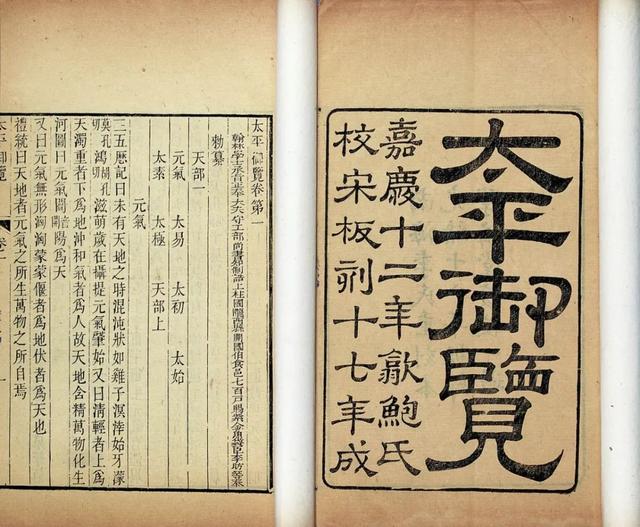 太平御覽
嘉慶十二年歙鮑氏
校宋板刻十七年成
太平御覽卷第一
翰林學士承旨正奉大夫守工部尚書知制誥上柱國隴西縣開國伯食邑七百戶賜紫金魚袋臣李昉等奉
勅纂
天部一
元氣 太易 太初 太始
太素 太極 天部上
元氣
三五歷記曰未有天地之時混沌狀如雞子溟涬始牙濛
莫孔切鴻胡孔切滋萌歲在攝提元氣肇始又曰清輕者上爲
天濁重者下爲地沖和氣者爲人故天地含精萬物化生
河圖曰元氣闓音開陽爲天
又曰元氣無形洶洶蒙蒙偃者爲地伏者爲天也
禮統曰天地者元氣之所生萬物之所自焉
太平御覽 卷一 一